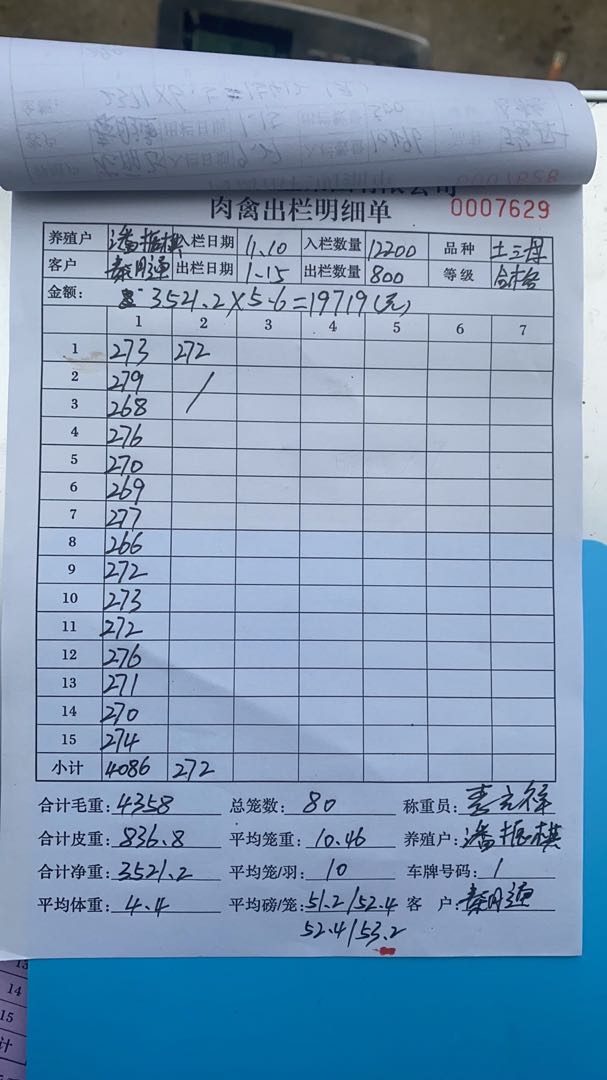 肉禽出栏明细单 0007629
养殖户 潘振棋 入栏日期 11.10 入栏数量 12200 品种 土三母
客户 秦明通 出栏日期 1-15 出栏数量 800 等级 合格
金额: 3521.2×5.6=19719(元)
1 2 3 4 5 6 7
1 273 272
2 279 /
3 268
4 276
5 270
6 269
7 277
8 266
9 272
10 273
11 272
12 276
13 271
14 270
15 274
小计 4086 272
合计毛重: 4358 总笼数: 80 称重员:
合计皮重: 836.8 平均笼重: 10.46 养殖户: 潘振棋
合计净重: 3521.2 平均笼/羽: 10 车牌号码: 1
平均体重: 4.4 平均磅/笼: 51.2/52.4 客 户: 秦明通
52.4/53.2
13
14
15
计